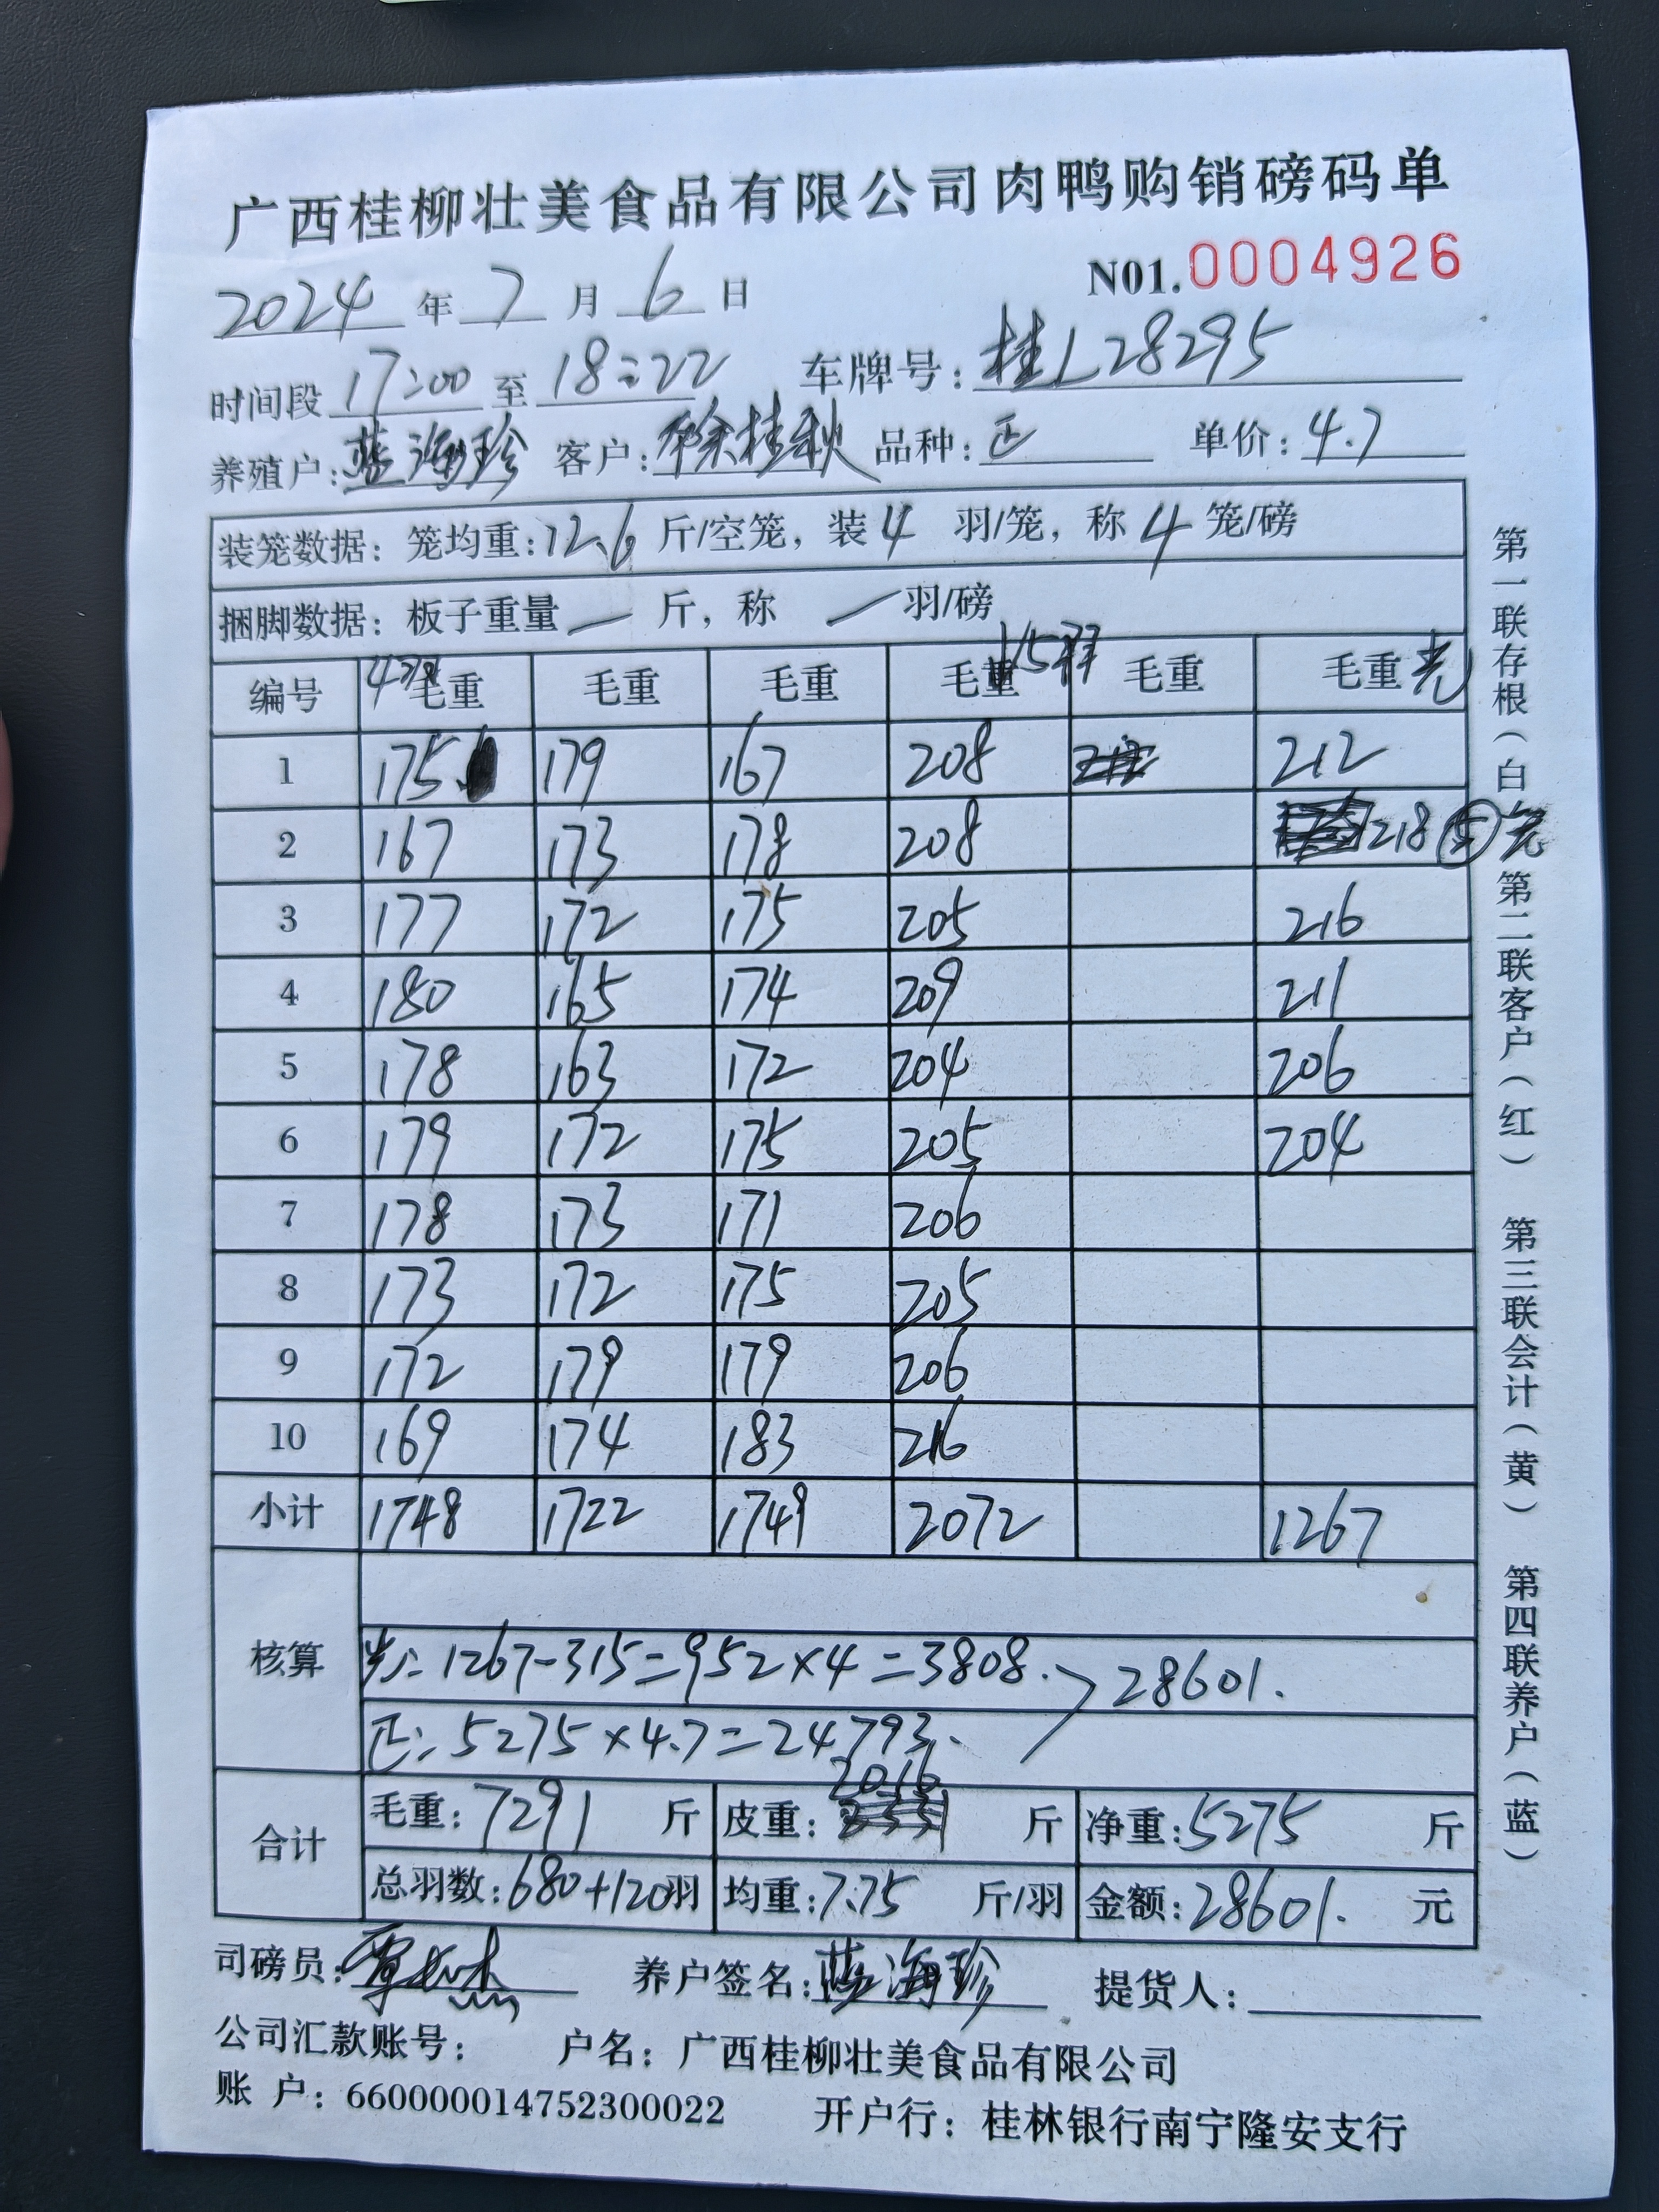 广西桂柳壮美食品有限公司肉鸭购销磅码单
N01.0004926
2024年7月6日
时间段17:00至18:22 车牌号:桂L28295
养殖户:蓝海珍 客户:徐桂秋 品种:正 单价:4.7
装笼数据:笼均重:12.6斤/空笼,装4羽/笼,称4笼/磅
捆脚数据:板子重量 — 斤,称 — 羽/磅
编号 毛重 毛重 毛重 毛重 毛重 毛重
1 175 179 167 208 212
2 167 173 178 208 218 ⑤
3 177 172 175 205 216
4 180 165 174 209 211
5 178 163 172 204 206
6 179 172 175 205 204
7 178 173 171 206
8 173 172 175 205
9 172 179 179 206
10 169 174 183 216
小计 1748 1722 1749 2072 1267
核算
1267-315=952×4=3808. 28601.
正:5275×4.7=24793.
合计 毛重:7291斤 皮重:2016斤 净重:5275斤
总羽数:680+120羽 均重:7.75斤/羽 金额:28601.元
司磅员: 养户签名:蓝海珍 提货人:
公司汇款账号: 户名:广西桂柳壮美食品有限公司
账 户:660000014752300022 开户行:桂林银行南宁隆安支行
第一联存根(白) 第二联客户(红) 第三联会计(黄) 第四联养户(蓝)